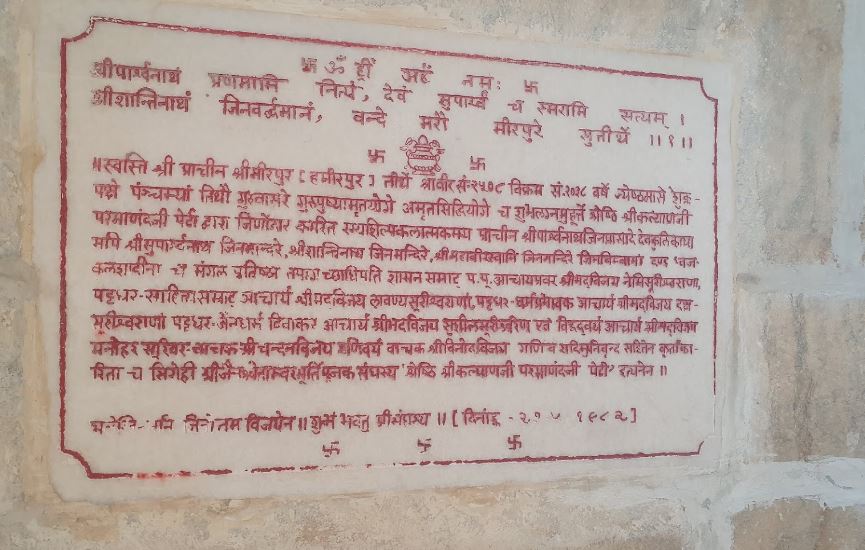 卐 ॐ ह्रीँ अर्हं नमः 卐
श्रीपार्श्वनाथं प्रणमामि नित्यं, देवं सुपार्श्वं च स्मरामि सत्यम् ।
श्रीशान्तिनाथं जिनवर्द्धमानं, वन्दे मरौ मीरपुरे सुतीर्थे ।।१।।
卐 卐
॥स्वस्ति श्री प्राचीन श्रीमीरपुर [हमीरपुर] तीर्थे श्रीवीर सं.२५०८ विक्रम सं.२०३८ वर्षे ज्येष्ठमासे शुक्ल-
पक्षे पञ्चम्यां तिथौ गुरुवासरे गुरुपुष्यामृतयोगे अमृतसिद्धियोगे च शुभलग्नमुहूर्ते श्रेष्ठि श्रीकल्याणजी
परमाणंदजी पेढी द्वारा जिर्णोद्धार कारित सम्यशिल्पकलात्मकमय प्राचीन श्रीपार्श्वनाथजिनप्रासादे देवकुलिकाया
मपि श्रीसुपार्श्वनाथ जिनमन्दिरे, श्रीशान्तिनाथ जिनमन्दिरे, श्रीमहावीरस्वामि जिनमन्दिरे जिनबिम्बानां दण्ड ध्वज-
कलशादीनां च मंगल प्रतिष्ठा तपागच्छाधिपति शासन सम्राट् प.पू. आचार्यप्रवर श्रीमद्विजय नेमिसूरीश्वराणां,
पट्टधर-साहित्यसम्राट् आचार्य श्रीमद्विजय लावण्यसूरीश्वराणां, पट्टधर-धर्मप्रभावक आचार्य श्रीमद्विजय दक्ष-
सूरीश्वराणां पट्टधर-जैनधर्म दिवाकर आचार्य श्रीमद्विजय सुशीलसूरीश्वरेण एवं विद्वद्वर्य आचार्य श्रीमद्विजय
मनोहर सूरिवर-वाचक श्रीचन्दनविजय गणिवर्य वाचक श्रीविनोदविजय गणिवर्य सहितेन
च सिरोही श्रीजैनश्वेताम्बरमूर्तिपूजक संघस्य श्रेष्ठि श्रीकल्याणजी परमाणंदजी पेढी इत्यनेन ॥
विजयेन ॥ शुभं भवतु श्रीसंघस्य ॥ [दिनांक - १९८२]
卐 卐 卐